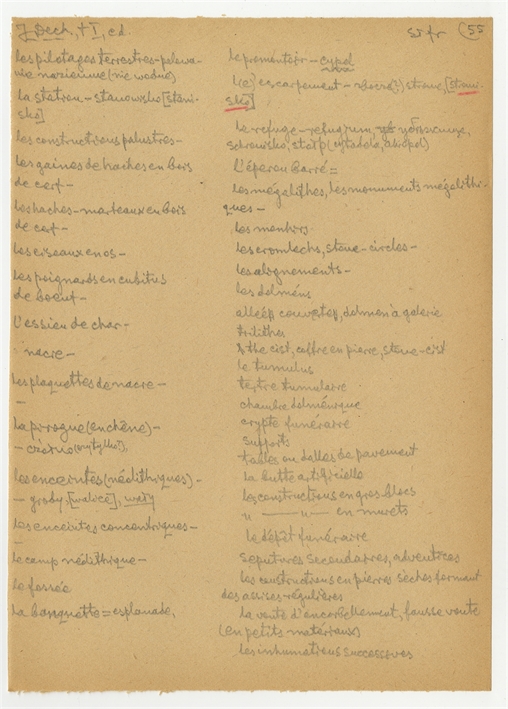 J. Dech., t I, cd.
str fr
55
Les pilotages terrestres - palowa-
nie naziemne (nie wodne)
la station - stanowisko [stani-
sko]
les constructions palustres -
les gaines de haches en bois
de cerf -
les haches - marteaux en bois
de cerf -
les ciseaux en os -
les poignards en cubitus
de boeuf -
l'essieu de char -
nacre -
les plaquettes de nacre -
-
la pirogue (en chêne) -
- czółno
les enceintes (néolithiques) -
- grody [walice], wały
les enceintes concentriques -
le camp néolithique -
le fossée
la banquette = esplanade,
le promontoir - cypel
l(e) escarpement - strome, [stani-
sko]
le refuge - refugium,
schronisko, (cytadela, akropol)
l'éperon barré =
les mégalithes, les monuments mégalithi-
ques -
les menhirs
les cromlechs, stone-circles -
les alignements -
les dolméns
alleés couvertes, dolmen à galerie
trilithes
the cist, coffre en pierre, stone-cist
le tumulus
tertre tumulaire
chambre dolménique
crypte funéraire
supports
tables ou dalles de pavement
la butte artificielle
les constructions en gros blocs
" ——— " — en murets
le dépôt funéraire
sepultures secondaires, adventices
les constructions en pierres sèches formant
des assises régulières
la voute d'encorbellement, fausse voute
(en petits matériaux)
les inhumations successives